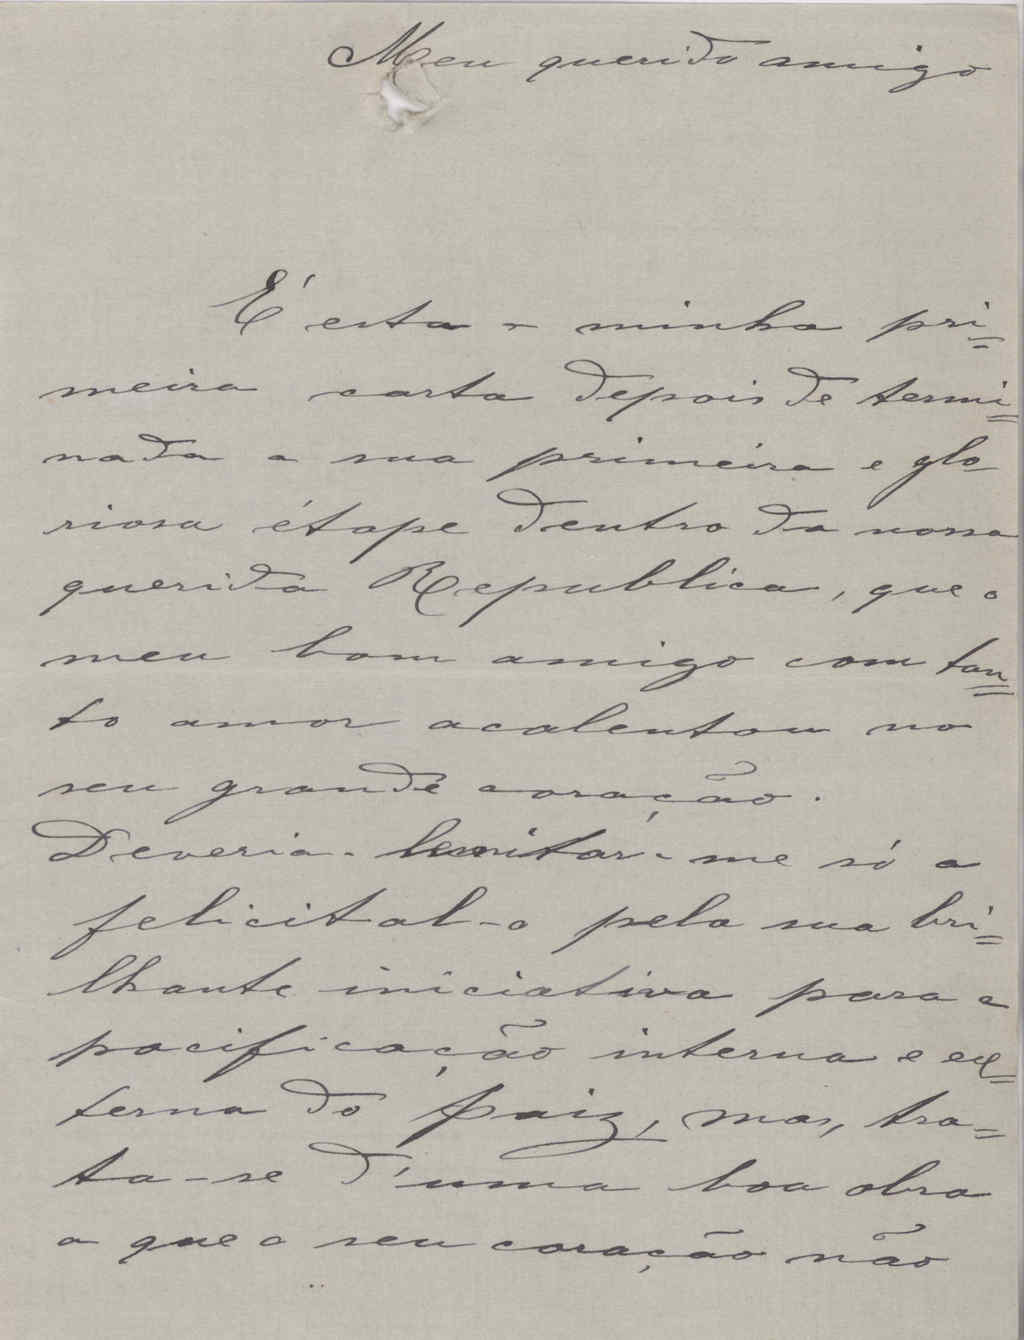 Meu querido amigo
É esta a minha pri=
meira carta depois de termi=
nada a sua primeira e glo-
riosa étape dentro da nossa
querida Republica, que o
meu bom amigo com tan=
to amor acalentou no
seu grande coração.
Deveria-limitar-me só a
felicital-o pela sua bri=
lhante iniciativa para a
pacificação interna e ex=
terna do paiz, mas, tra=
ta-se d'uma boa obra
a que o seu coração não